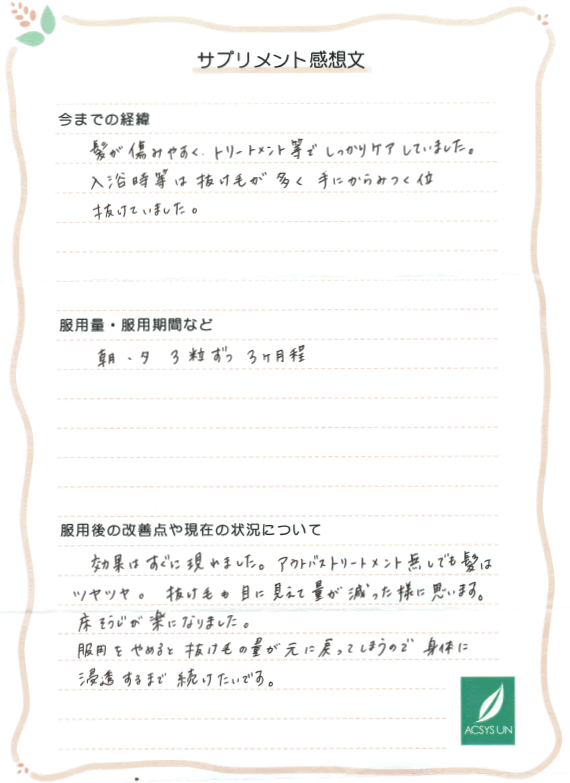 サプリメント感想文
今までの経緯
髪が傷みやすく、トリートメント等でしっかりケアしていました。
入浴時等は抜け毛が多く手にからみつく位
抜けていました。
服用量・服用期間など
朝・夕 3粒ずつ 3ヶ月程
服用後の改善点や現在の状況について
効果はすぐに現れました。アウトバストリートメント無しでも髪は
ツヤツヤ。抜け毛も目に見えて量が減った様に思います。
床そうじが楽になりました。
服用をやめると抜け毛の量が元に戻ってしまうので身体に
浸透するまで続けたいです。
ACSYS UN